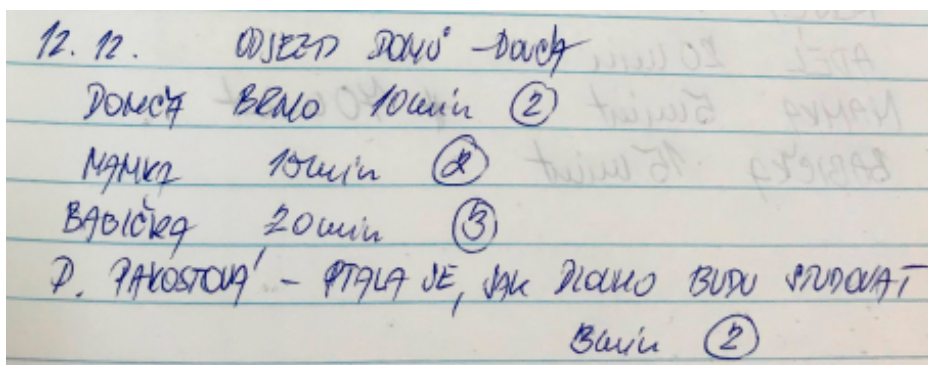 12.12. ODJEZD DOMŮ - DOMČA
DOMČA BRNO 10 min 2
MAMKA 15 min 2
BABIČKA 20 min 3
P. PAKOSTOVÁ - PTALA SE, JAK DLOUHO BUDU STUDOVAT
3 min 2